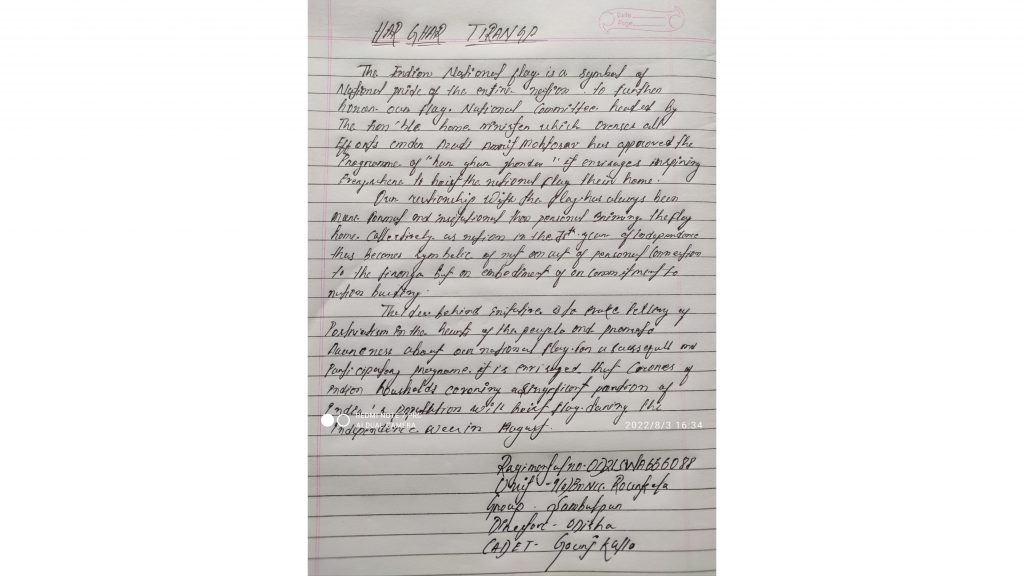 Date
Page
HAR GHAR TIRANGA
The Indian National flag is a symbol of
National pride of the entire nation to further
honour our flag. National Committee headed by
The hon'ble home minister which oversees all
Efforts under Azadi Amrit Mahotsav has approved the
Programme of "har ghar jhonda" it envisages inspiring
Everywhere to hoist the national flag their home.
Our relationship with the flag has always been
more formal and institutional than personal Brining the flag
home Collectively as nation in the 75th year of independence
thus becomes symbolic of not an act of personal Connection
to the tiranga but an embodiment of an commitment to
nation building.
The idea behind initiative is to make felling of
Patriotism in the hearts of the people and promote
Awareness about our national flag. For a successfull and
Participatory programme. it is envisaged that Corores of
Indian housholds covering a significant portion of
India's population will hoist flag during the
Independence week in August.
REDMI NOTE
AI DUAL CAMERA
2022/8/3 16:34
Regimental no - OD21SWA656088
Unit - Bn NCC Rourkela
Group - Sambalpur
Directore - Odisha
CADET - Gouri Kallo